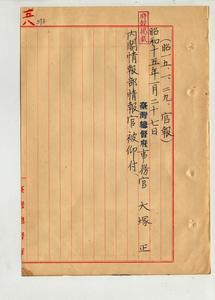 五八
府報掲載
(昭一五、一、二九、官報)
昭和十五年一月二十七日
臺灣總督府事務官 大塚 正
内閣情報部情報官被仰付
臺灣總督府